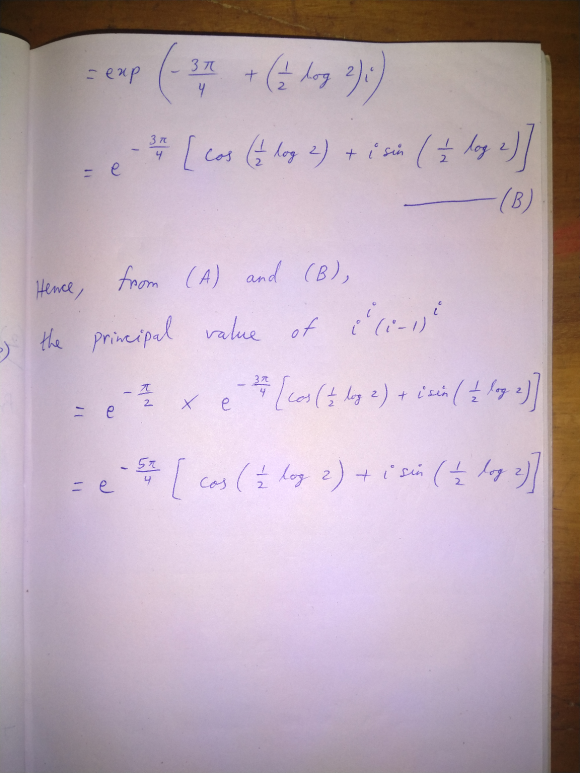 = exp (- 3π/4 + (1/2 log 2) i)
= e^{- 3π/4} [cos (1/2 log 2) + i sin (1/2 log 2)]
——— (B)
Hence, from (A) and (B),
the principal value of i^i (i-1)^i
= e^{- π/2} × e^{- 3π/4} [cos (1/2 log 2) + i sin (1/2 log 2)]
= e^{- 5π/4} [cos (1/2 log 2) + i sin (1/2 log 2)]